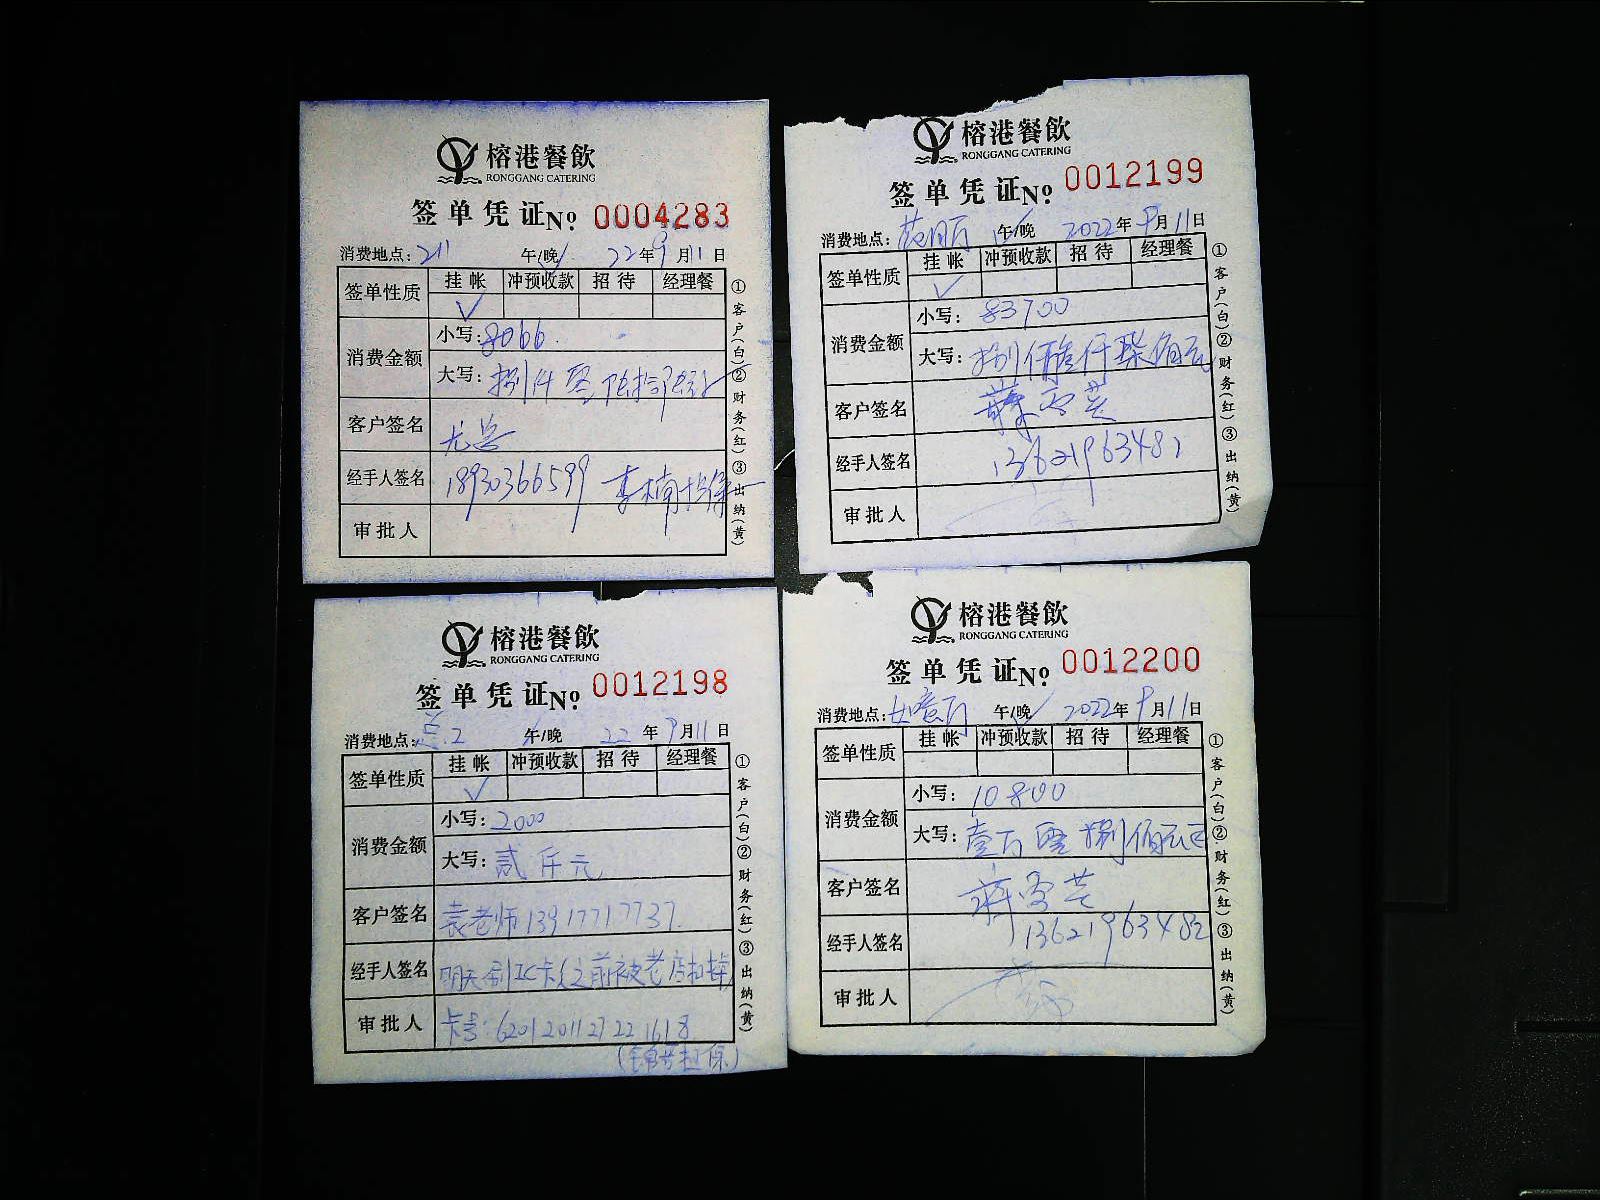 榕港餐飲
RONGGANG CATERING
签单凭证 No. 0004283
消费地点: 211 午/晚 22年9月11日
签单性质 挂帐 冲预收款 招待 经理餐
消费金额 小写: 8066
大写: 捌仟零陆拾陆元
客户签名
经手人签名 18930366599 李楠担保
审批人
①客户(白)②财务(红)③出纳(黄)
榕港餐飲
RONGGANG CATERING
签单凭证 No. 0012199
消费地点: 午/晚 2022年9月11日
签单性质 挂帐 冲预收款 招待 经理餐
消费金额 小写: 83700
大写: 捌 仟柒佰元
客户签名
经手人签名 13621963482
审批人
①客户(白)②财务(红)③出纳(黄)
榕港餐飲
RONGGANG CATERING
签单凭证 No. 0012198
消费地点: 总2 午/晚 22年9月11日
签单性质 挂帐 冲预收款 招待 经理餐
消费金额 小写: 2000
大写: 贰仟元
客户签名 袁老师13917717737
经手人签名 明天刷IC卡(之前被老店扣掉)
审批人 卡号: 6201201127221618
担保)
①客户(白)②财务(红)③出纳(黄)
榕港餐飲
RONGGANG CATERING
签单凭证 No. 0012200
消费地点: 午/晚 2022年9月11日
签单性质 挂帐 冲预收款 招待 经理餐
消费金额 小写: 10800
大写: 壹万零捌佰元正
客户签名
经手人签名 13621963482
审批人
①客户(白)②财务(红)③出纳(黄)